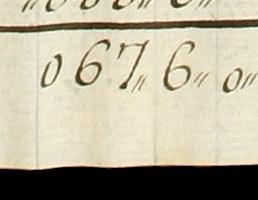 067〃 6〃 0〃